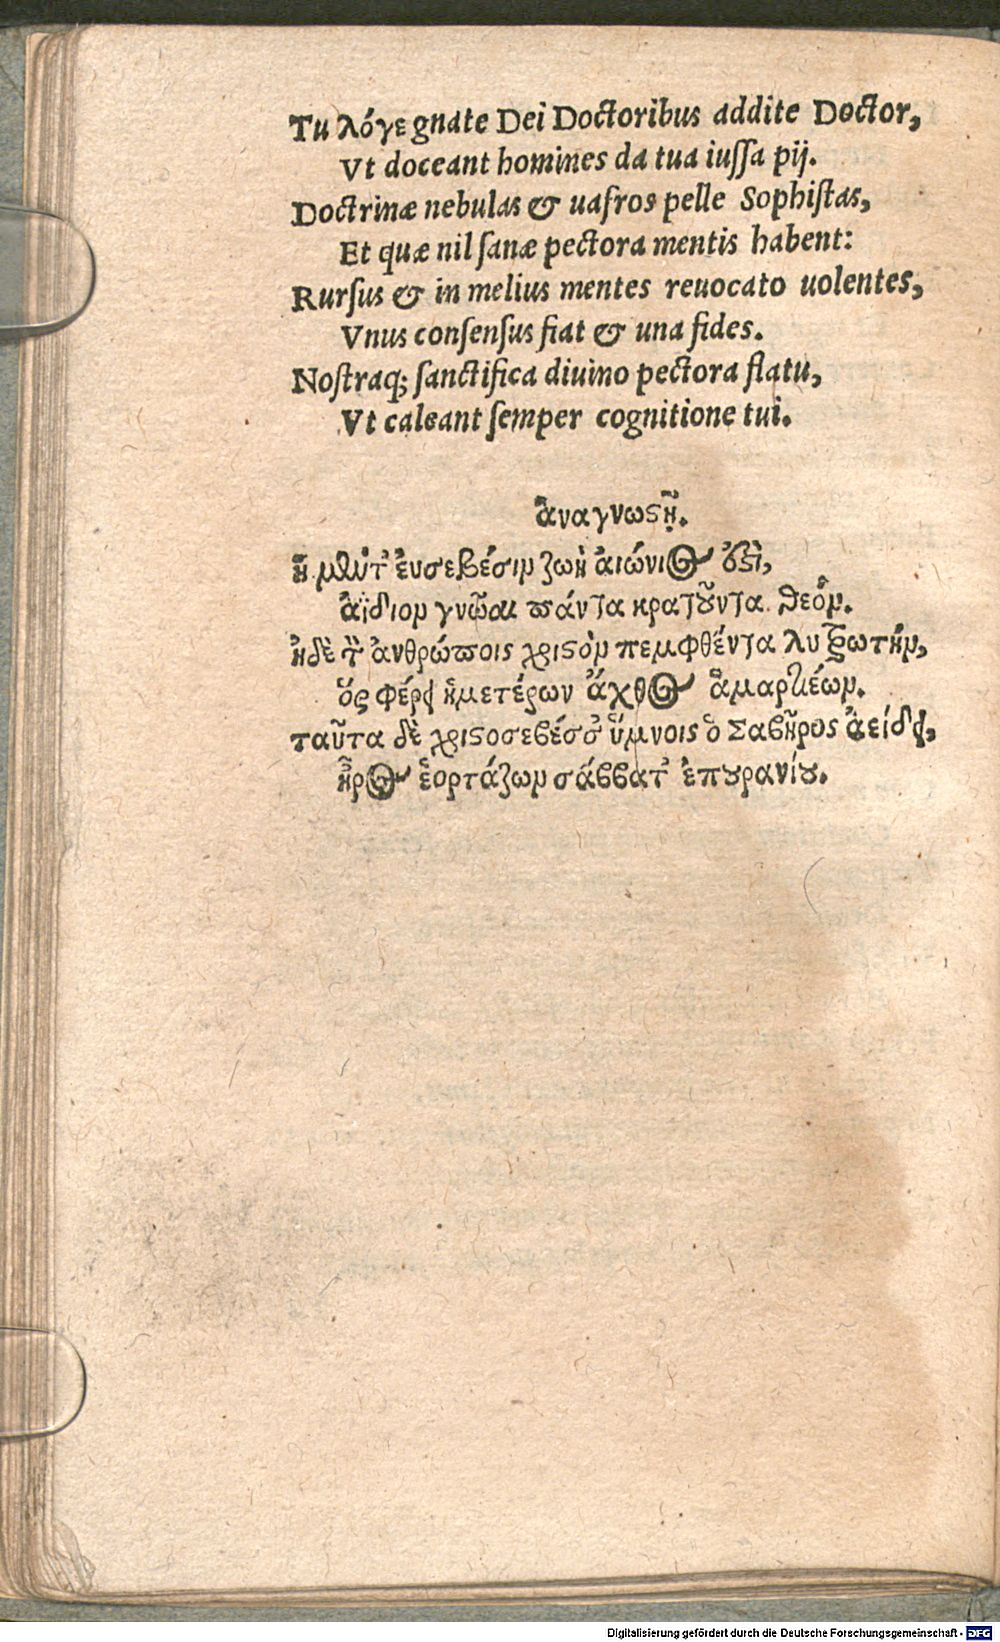 Tu λόγε gnate Dei Doctoribus addite Doctor,
Vt doceant homines da tua iussa pij.
Doctrinæ nebulas & uafros pelle Sophistas,
Et quæ nil sanæ pectora mentis habent:
Rursus & in melius mentes reuocato uolentes,
Vnus consensus fiat & una fides.
Nostraq; sanctifica diuino pectora flatu,
Vt caleant semper cognitione tui.
ἀναγνωϛῇ.
ἐυσεβέσιν ζωὴ ἀιώνιος ἐϛὶ,
ἀΐδιον γνῶναι πάντα κρατοῦντα θεόν.
ἠδὲ ἀνθρώποις χριϛὸν πεμφθέντα λυτρωτὴν,
ὅς φέρει ἡμετέρων ἄχθος ἁμαρτιέων.
ταῦτα δὲ χριϛοσεβέσσ' ὕμνοις ὁ Σαβῆρος ἀείδει,
ἦρος ἑορτάζων σάββατ' ἐπουρανίου.
Digitalisierung gefördert durch die Deutsche Forschungsgemeinschaft - DFG